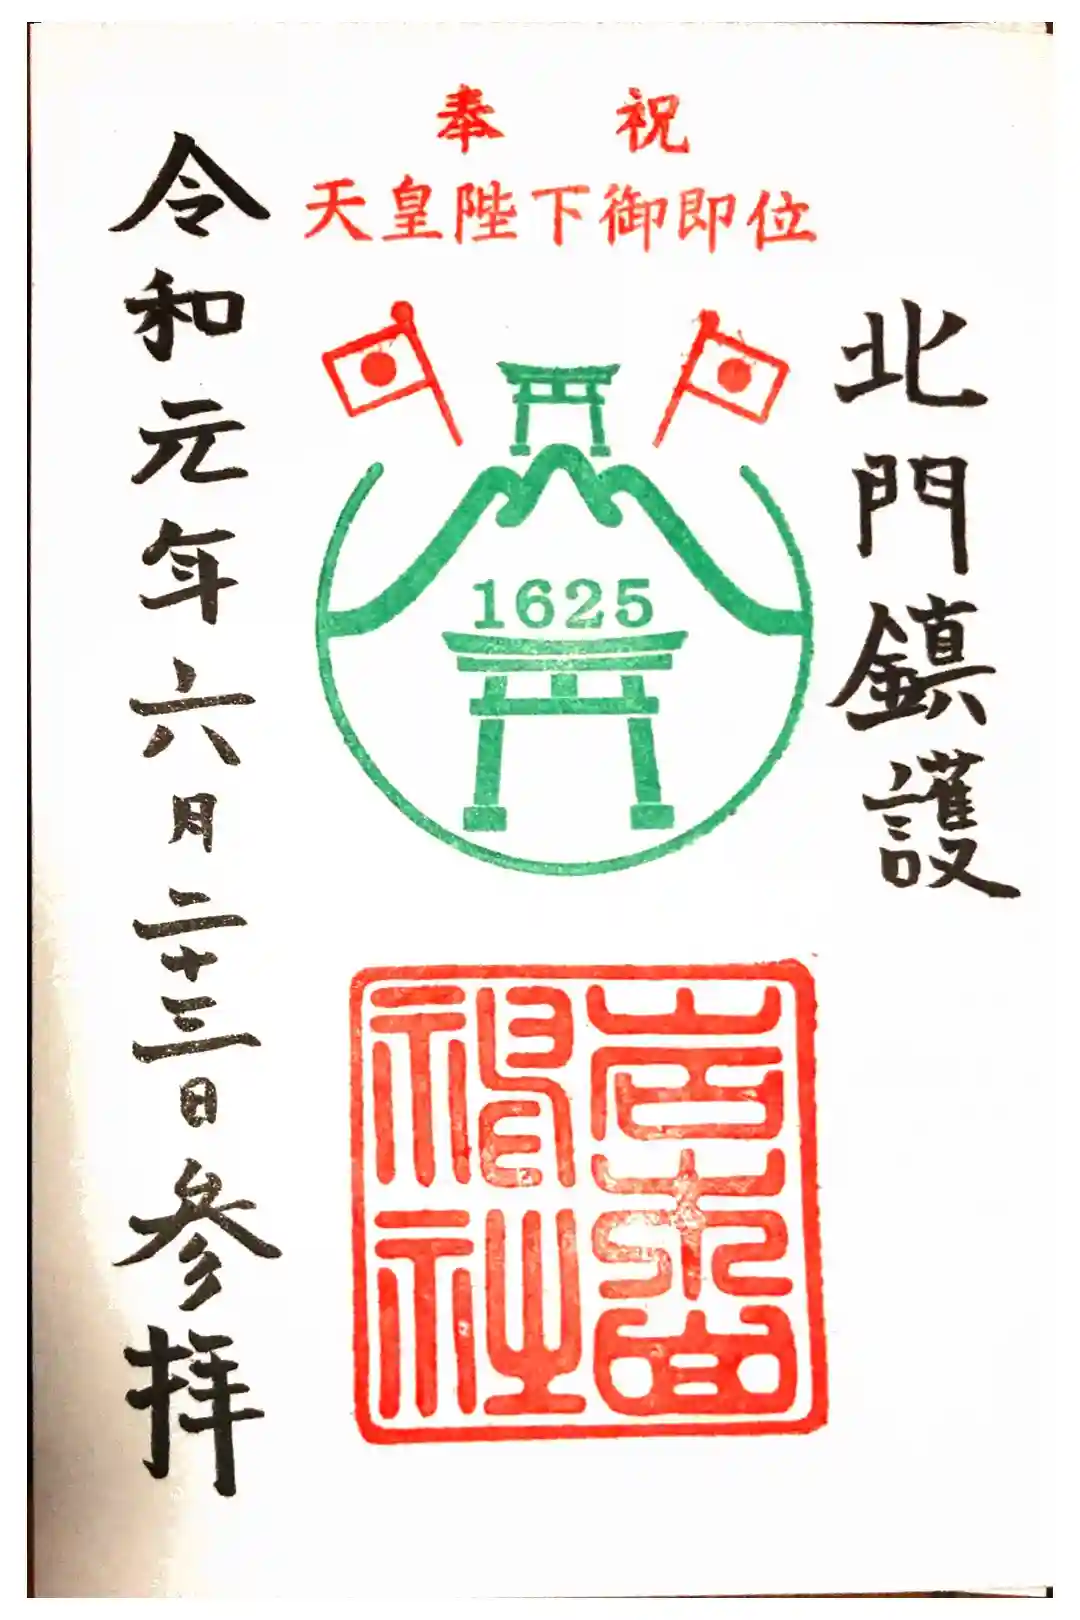 奉 祝
天皇陛下御即位
北門鎮護
1625
岩木山
神社
令和元年六月二十三日参拝